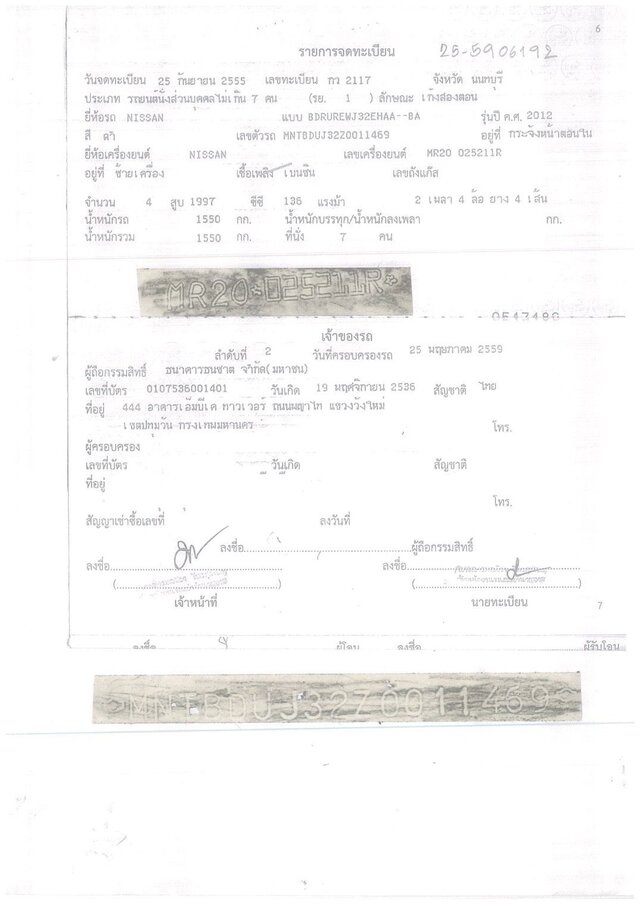 6
รายการจดทะเบียน 25-5906192
วันจดทะเบียน 25 กันยายน 2555 เลขทะเบียน กว 2117 จังหวัด นนทบุรี
ประเภท รถยนต์นั่งส่วนบุคคลไม่เกิน 7 คน (รย. 1 ) ลักษณะ เก๋งสองตอน
ยี่ห้อรถ NISSAN แบบ BDRUREWJ32EHAA--BA รุ่นปี ค.ศ. 2012
สี ดำ เลขตัวรถ MNTBDUJ32Z0011469 อยู่ที่ กระจังหน้าตอนใน
ยี่ห้อเครื่องยนต์ NISSAN เลขเครื่องยนต์ MR20 025211R
อยู่ที่ ซ้ายเครื่อง เชื้อเพลิง เบนซิน เลขถังแก๊ส
จำนวน 4 สูบ 1997 ซีซี 136 แรงม้า 2 เพลา 4 ล้อ ยาง 4 เส้น
น้ำหนักรถ 1550 กก. น้ำหนักบรรทุก/น้ำหนักลงเพลา กก.
น้ำหนักรวม 1550 กก. ที่นั่ง 7 คน
MR20 025211R
เจ้าของรถ
ลำดับที่ 2 วันที่ครอบครองรถ 25 พฤษภาคม 2559
ผู้ถือกรรมสิทธิ์ ธนาคารธนชาต จำกัด(มหาชน)
เลขที่บัตร 0107536001401 วันเกิด 19 พฤศจิกายน 2536 สัญชาติ ไทย
ที่อยู่ 444 อาคารเอ็มบีเค ทาวเวอร์ ถนนพญาไท แขวงวังใหม่
เขตปทุมวัน กรุงเทพมหานคร โทร.
ผู้ครอบครอง
เลขที่บัตร วันเกิด สัญชาติ
ที่อยู่
โทร.
สัญญาเช่าซื้อเลขที่ ลงวันที่
ลงชื่อ ผู้ถือกรรมสิทธิ์
ลงชื่อ ลงชื่อ
( ) ( )
เจ้าหน้าที่ นายทะเบียน 7
ลงชื่อ ผู้โอน ลงชื่อ ผู้รับโอน
MNTBDUJ32Z0011469